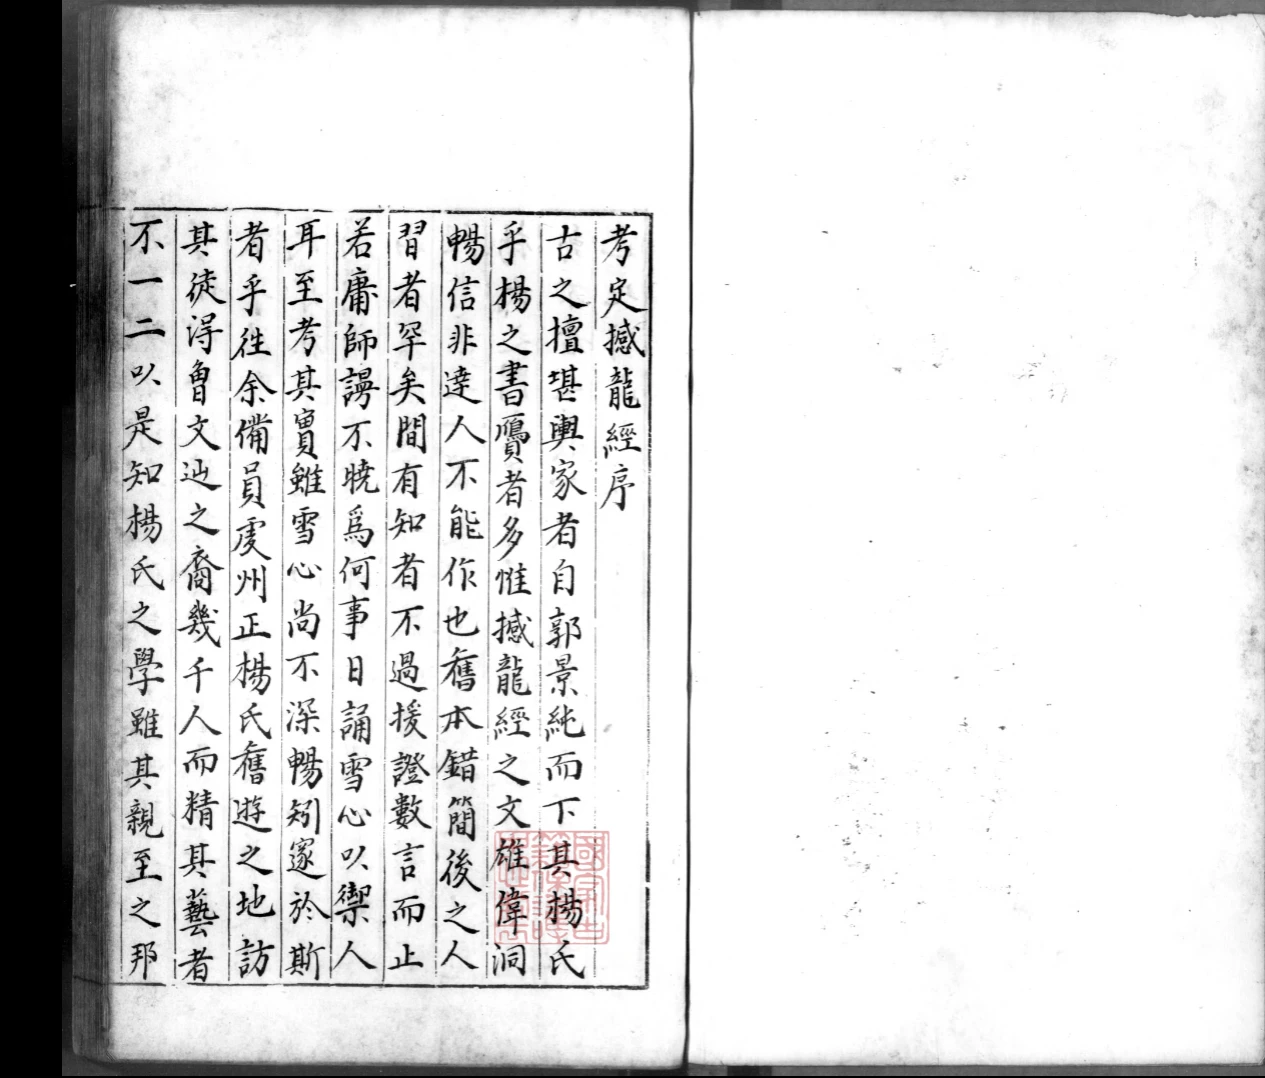 考定撼龍經序
古之擅堪輿家者自郭景純而下其楊氏
乎楊之書贋者多惟撼龍經之文雄偉洞
暢信非達人不能作也舊本錯簡後之人
習者罕矣間有知者不過援證數言而止
若庸師謭不曉爲何事日誦雪心以禦人
耳至考其實雖雪心尚不深暢矧邃於斯
者乎往余備員虔州正楊氏舊遊之地訪
其徒得曾文辿之裔幾千人而精其藝者
不一二以是知楊氏之學雖其親至之邦